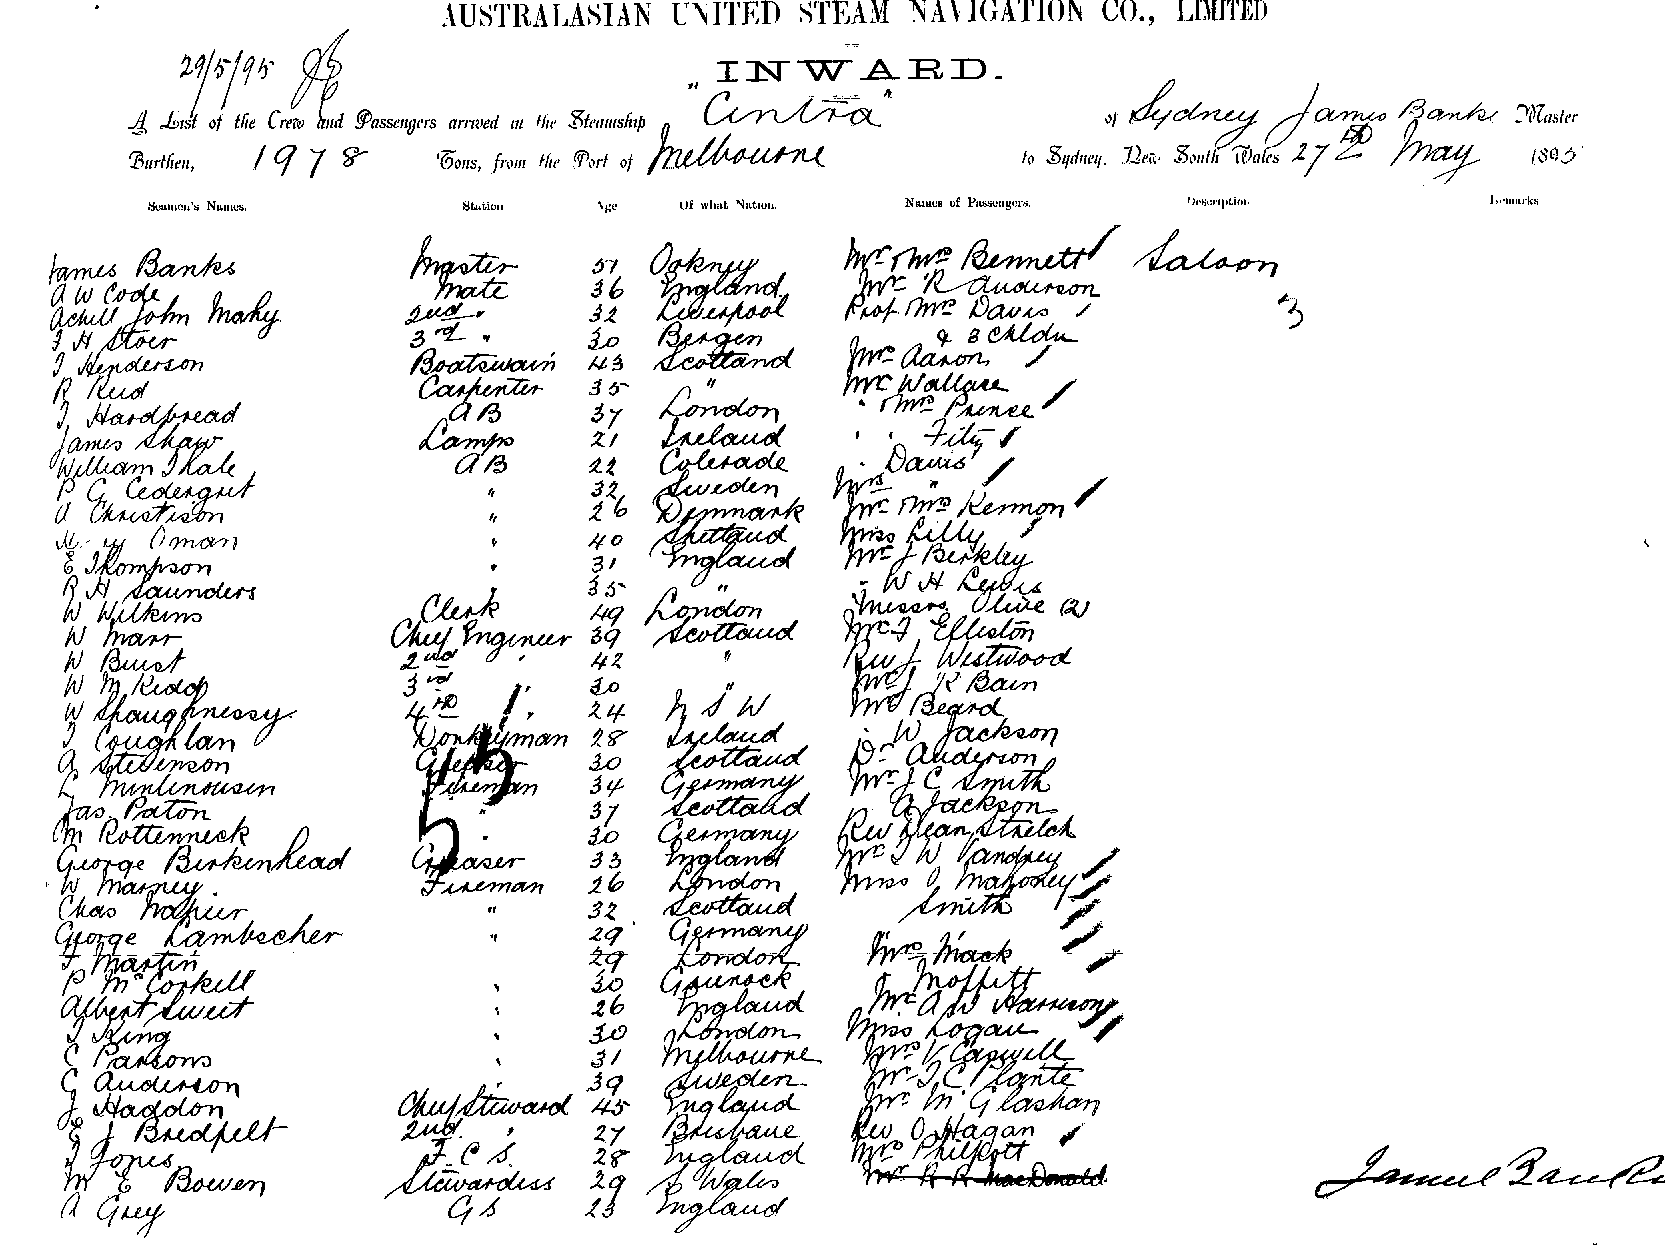 AUSTRALASIAN UNITED STEAM NAVIGATION CO., LIMITED
29/5/95
INWARD.
A List of the Crew and Passengers arrived in the Steamship "Cintra" of Sydney James Banks Master
Burthen, 1978 Tons, from the Port of Melbourne to Sydney, New South Wales 27th May 1895
Seamen's Names. Station Age Of what Nation. Names of Passengers. Description Remarks
James Banks Master 51 Orkney Mr & Mrs Bennett Saloon
A W Code Mate 36 England Mr R Anderson
Achill John Mahy 2nd " 32 Liverpool Prof Mrs Davis 3
J H Stoer 3rd " 30 Bergen & 3 Chldn
J Henderson Boatswain 43 Scotland Mrs Aaron
R Reid Carpenter 35 " Mr Wallace
J Hardbread A B 37 London " & Mrs Prince
James Shaw Lamps 21 Ireland " " Fitz
William Thale A B 22 Colerade " Davis
P G Cedergret " 32 Sweden Mrs "
A Christison " 26 Denmark Mr & Mrs Kermon
Oman " 40 Shetland Miss Lilly
E Thompson " 31 England Mr J Berkley
R H Saunders 35 " " W H Lewis
W Wilkins Clerk 49 London Messrs Olive (2)
W Marr Chief Engineer 39 Scotland Mr J Elliston
W Buist 2nd " 42 " Rev J Westwood
W M Kidd 3rd " 30 " Mr J K Bain
W Shaughnessy 4th " 24 N S W Mr Beard
J Coughlan Donkeyman 28 Ireland " W Jackson
A Stevenson Greaser 30 Scotland Dr Anderson
Fireman 34 Germany Mr J C Smith
Jas. Paton " 37 Scotland A Jackson
M Rottenneck " 30 Germany Rev Dean Stretch
George Birkenhead Greaser 33 England Mr T W
W Marney Fireman 26 London Miss O Mahoney
Chas Napier " 32 Scotland Smith
George Lambscher " 29 Germany
F Martin 29 London Mrs Mack
P McCorkill " 30 Gourock " Moffitt
Albert Sweet " 26 England Mr A W Harrison
J King " 30 London Miss Logan
C Parsons " 31 Melbourne Mrs V Caswell
G Anderson 39 Sweden Mr J C Plante
J Haddon Chief Steward 45 England Mr McGlashan
E J Bredfelt 2nd " 27 Brisbane Rev O Hagan
J Jones F. C S. 28 England Mrs Philpott
M E Bowen Stewardess 29 S Wales Mr R R MacDonald
A Grey G S 23 England
James Banks